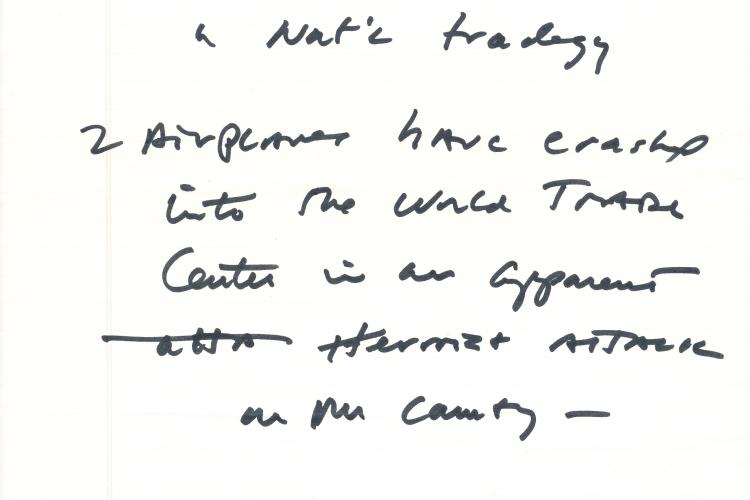 a Nat'l tradegy
2 Airplanes have crashed
into the World Trade
Center in an apparent
atta terrorist attack
on our country —